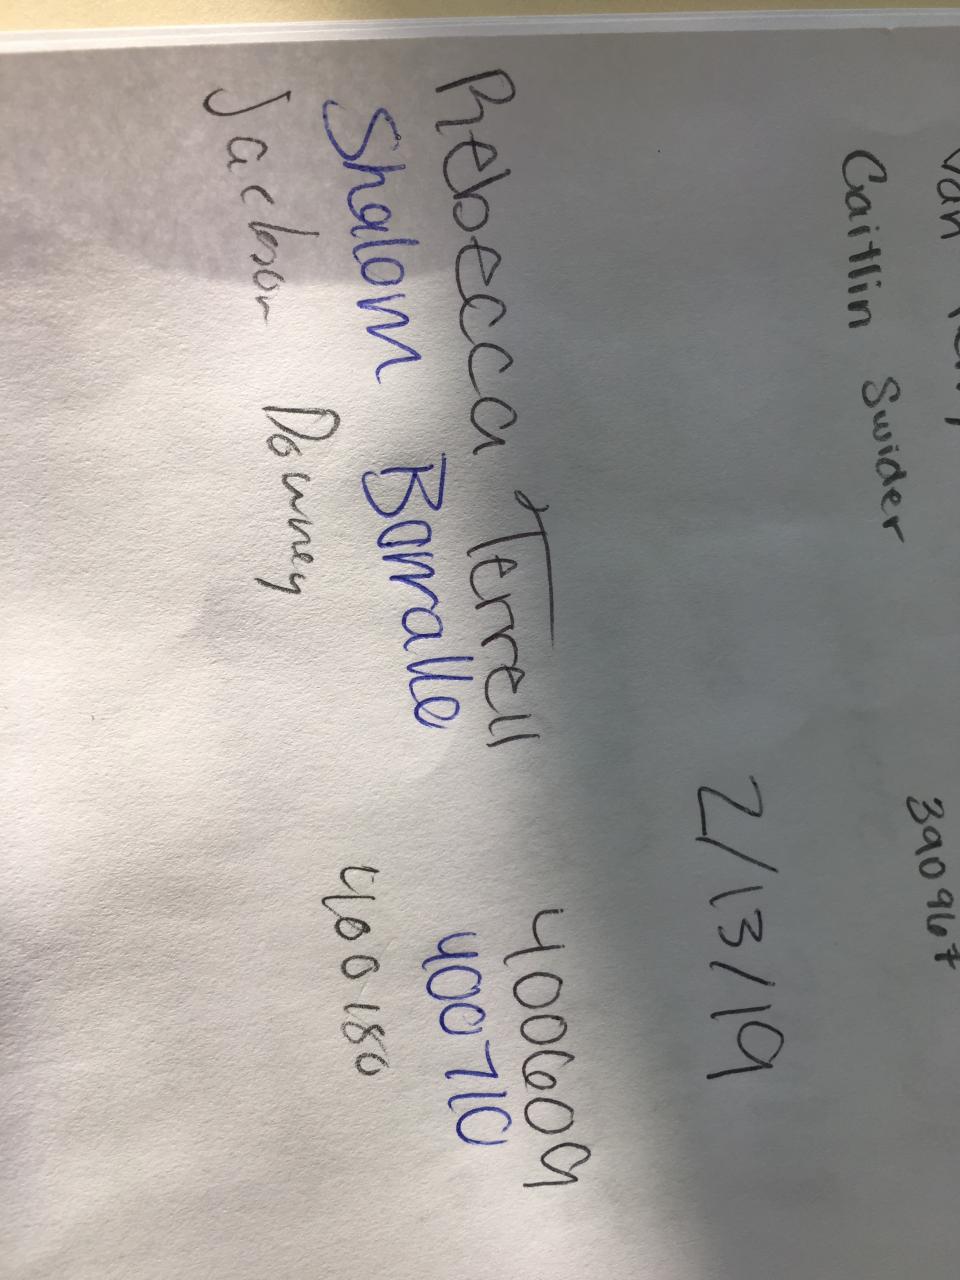 Caitlin Swider 390967
2/13/19
Rebecca Terrell 400609
Shalom 400710
Jackson Downey 400180